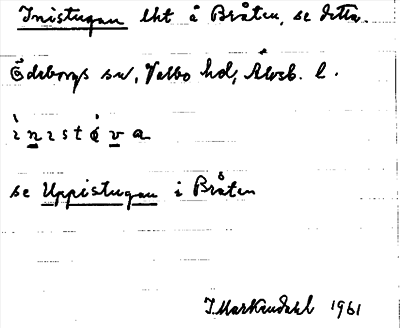 Inistugan lht å Bråten, se detta.
Ödeborgs sn, Valbo hd, Älvsb. l.
ì n ɩ s t ó v a
se Uppistugan i Bråten
J Markendahl 1961